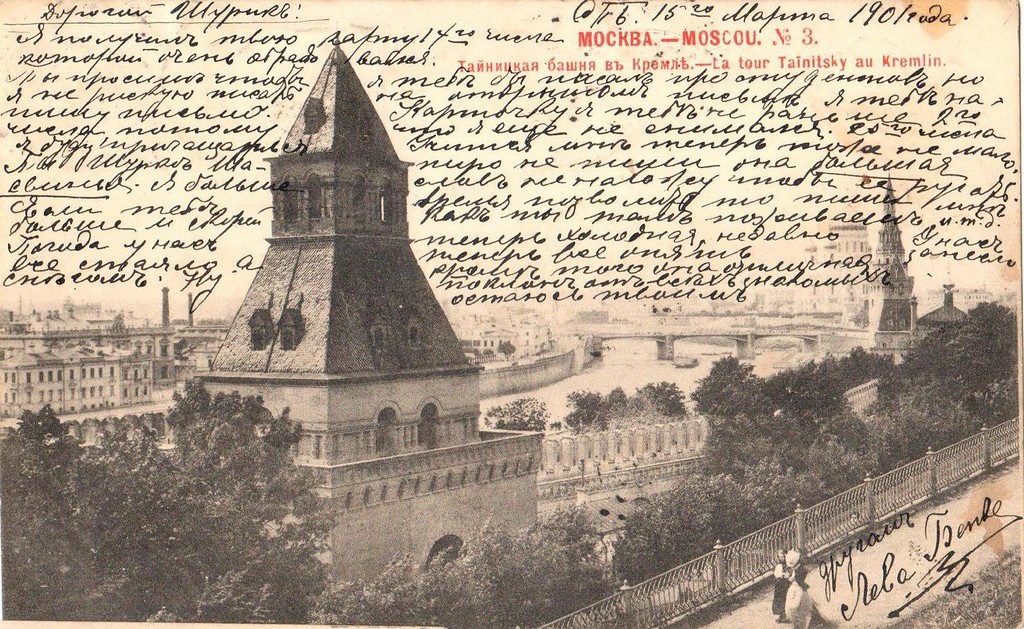 Дорогой Шурикъ! СПБ. 15го Марта 1901 года.
МОСКВА.—MOSCOU. № 3.
Тайницкая башня въ Кремлѣ.—La tour Taïnitsky au Kremlin.
Я получилъ твою карту 14го числа
которой очень обрадовался.
Ты просишь чтобы я тебѣ бы писалъ про студентовъ, но
я не рискую писать на открытомъ письмѣ я тебѣ на-
пишу письмо. Карточку я тебѣ не раньше 2го
числа потому что я еще не снимался. 25го числа
я буду причащаться Учится мнѣ теперь тоже не мало.
Ты Шурикъ Ша- пиро не пиши она большая
свинья. Я больше словъ не нахожу чтобы ее ругать.
Если тебѣ время позволитъ то пиши мнѣ
больше и скорей Какъ ты тамъ поживаешь и.т.д.
Погода у насъ теперь холодная, недавно у насъ
все стаяло а теперь все опять занесло
снѣгомъ. Ну кромѣ того она отличная
поклонъ отъ всѣхъ знакомыхъ
остаюсь твоимъ
другомъ
Лева Бенке